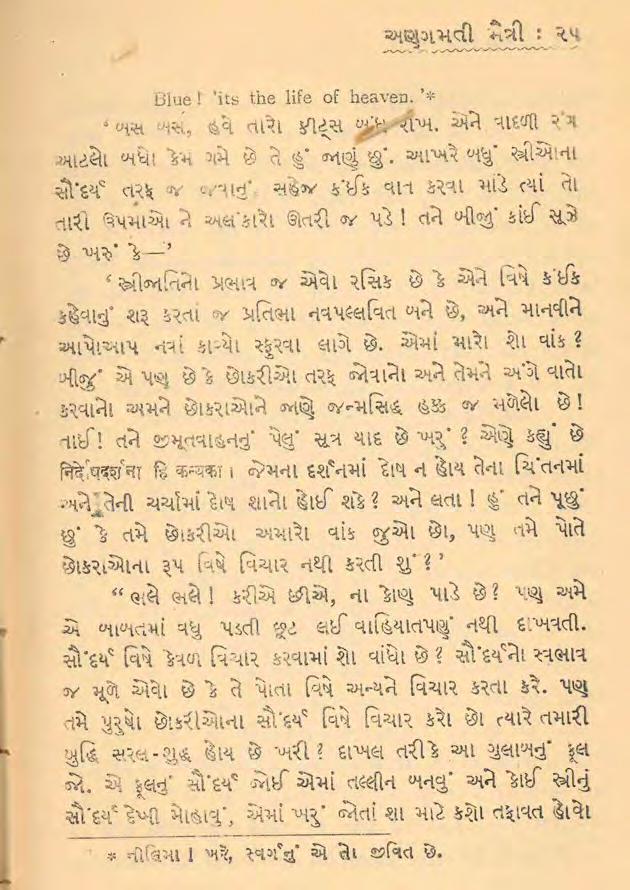 અણુગમતી મૈત્રી : ૨૫
Blue! 'its the life of heaven.'*
‘બસ બસ, હવે તારો કીટ્સ બંધ રાખ. એને વાદળી રંગ
આટલો બધો કેમ ગમે છે તે હું જાણું છું. આખરે બધું સ્ત્રીઓના
સૌંદર્ય તરફ જ જવાનું. સહેજ કંઈક વાત કરવા માંડે ત્યાં તો
તારી ઉપમાઓ ને અલંકારો ઊતરી જ પડે! તને બીજું કાંઈ સૂઝે
છે ખરું કે—’
‘સ્ત્રીજાતિનો પ્રભાવ જ એવો રસિક છે કે એને વિષે કંઈક
કહેવાનું શરૂ કરતાં જ પ્રતિભા નવપલ્લવિત બને છે, અને માનવીને
આપોઆપ નવાં કાવ્યો સ્ફુરવા લાગે છે. એમાં મારો શો વાંક?
બીજું એ પણ છે કે છોકરીઓ તરફ જોવાનો અને તેમને અંગે વાતો
કરવાનો અમને છોકરાઓને જાણે જન્મસિદ્ધ હક્ક જ મળેલો છે!
તાઈ! તને જીમૂતવાહનનું પેલું સૂત્ર યાદ છે ખરું? એણે કહ્યું છે
निर्दोषदर्शना हि कन्यका। જેમના દર્શનમાં દોષ ન હોય તેના ચિંતનમાં
અને તેની ચર્ચામાં દોષ શાનો હોઈ શકે? અને લતા! હું તને પૂછું
છું કે તમે છોકરીઓ અમારો વાંક જુઓ છો, પણ તમે પોતે
છોકરાઓના રૂપ વિષે વિચાર નથી કરતી શું?’
“ભલે ભલે! કરીએ છીએ, ના કોણ પાડે છે? પણ અમે
એ બાબતમાં વધુ પડતી છૂટ લઈ વાહિયાતપણું નથી દાખવતી.
સૌંદર્ય વિષે કેવળ વિચાર કરવામાં શો વાંધો છે? સૌંદર્યનો સ્વભાવ
જ મૂળે એવો છે કે તે પોતા વિષે અન્યને વિચાર કરતા કરે. પણ
તમે પુરુષો છોકરીઓના સૌંદર્ય વિષે વિચાર કરો છો ત્યારે તમારી
બુદ્ધિ સરલ-શુદ્ધ હોય છે ખરી? દાખલ તરીકે આ ગુલાબનું ફૂલ
જો. એ ફૂલનું સૌંદર્ય જોઈ એમાં તલ્લીન બનવું અને કોઈ સ્ત્રીનું
સૌંદર્ય દેખી મોહાવું, એમાં ખરું જોતાં શા માટે કશો તફાવત હોવો
* નીલિમા! ખરે, સ્વર્ગનું એ તો જીવિત છે.